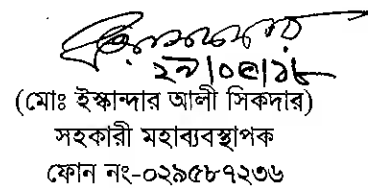 ২৯/০৫/১৮
(মোঃ ইস্কান্দার আলী সিকদার)
সহকারী মহাব্যবস্থাপক
ফোন নং-০২৯৫৮৭২৩৬